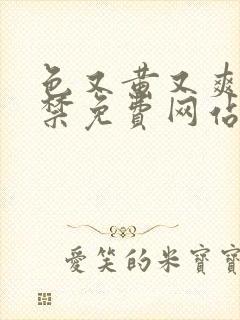 色又黄又爽
禁免費网佔
愛笑的米寶寶